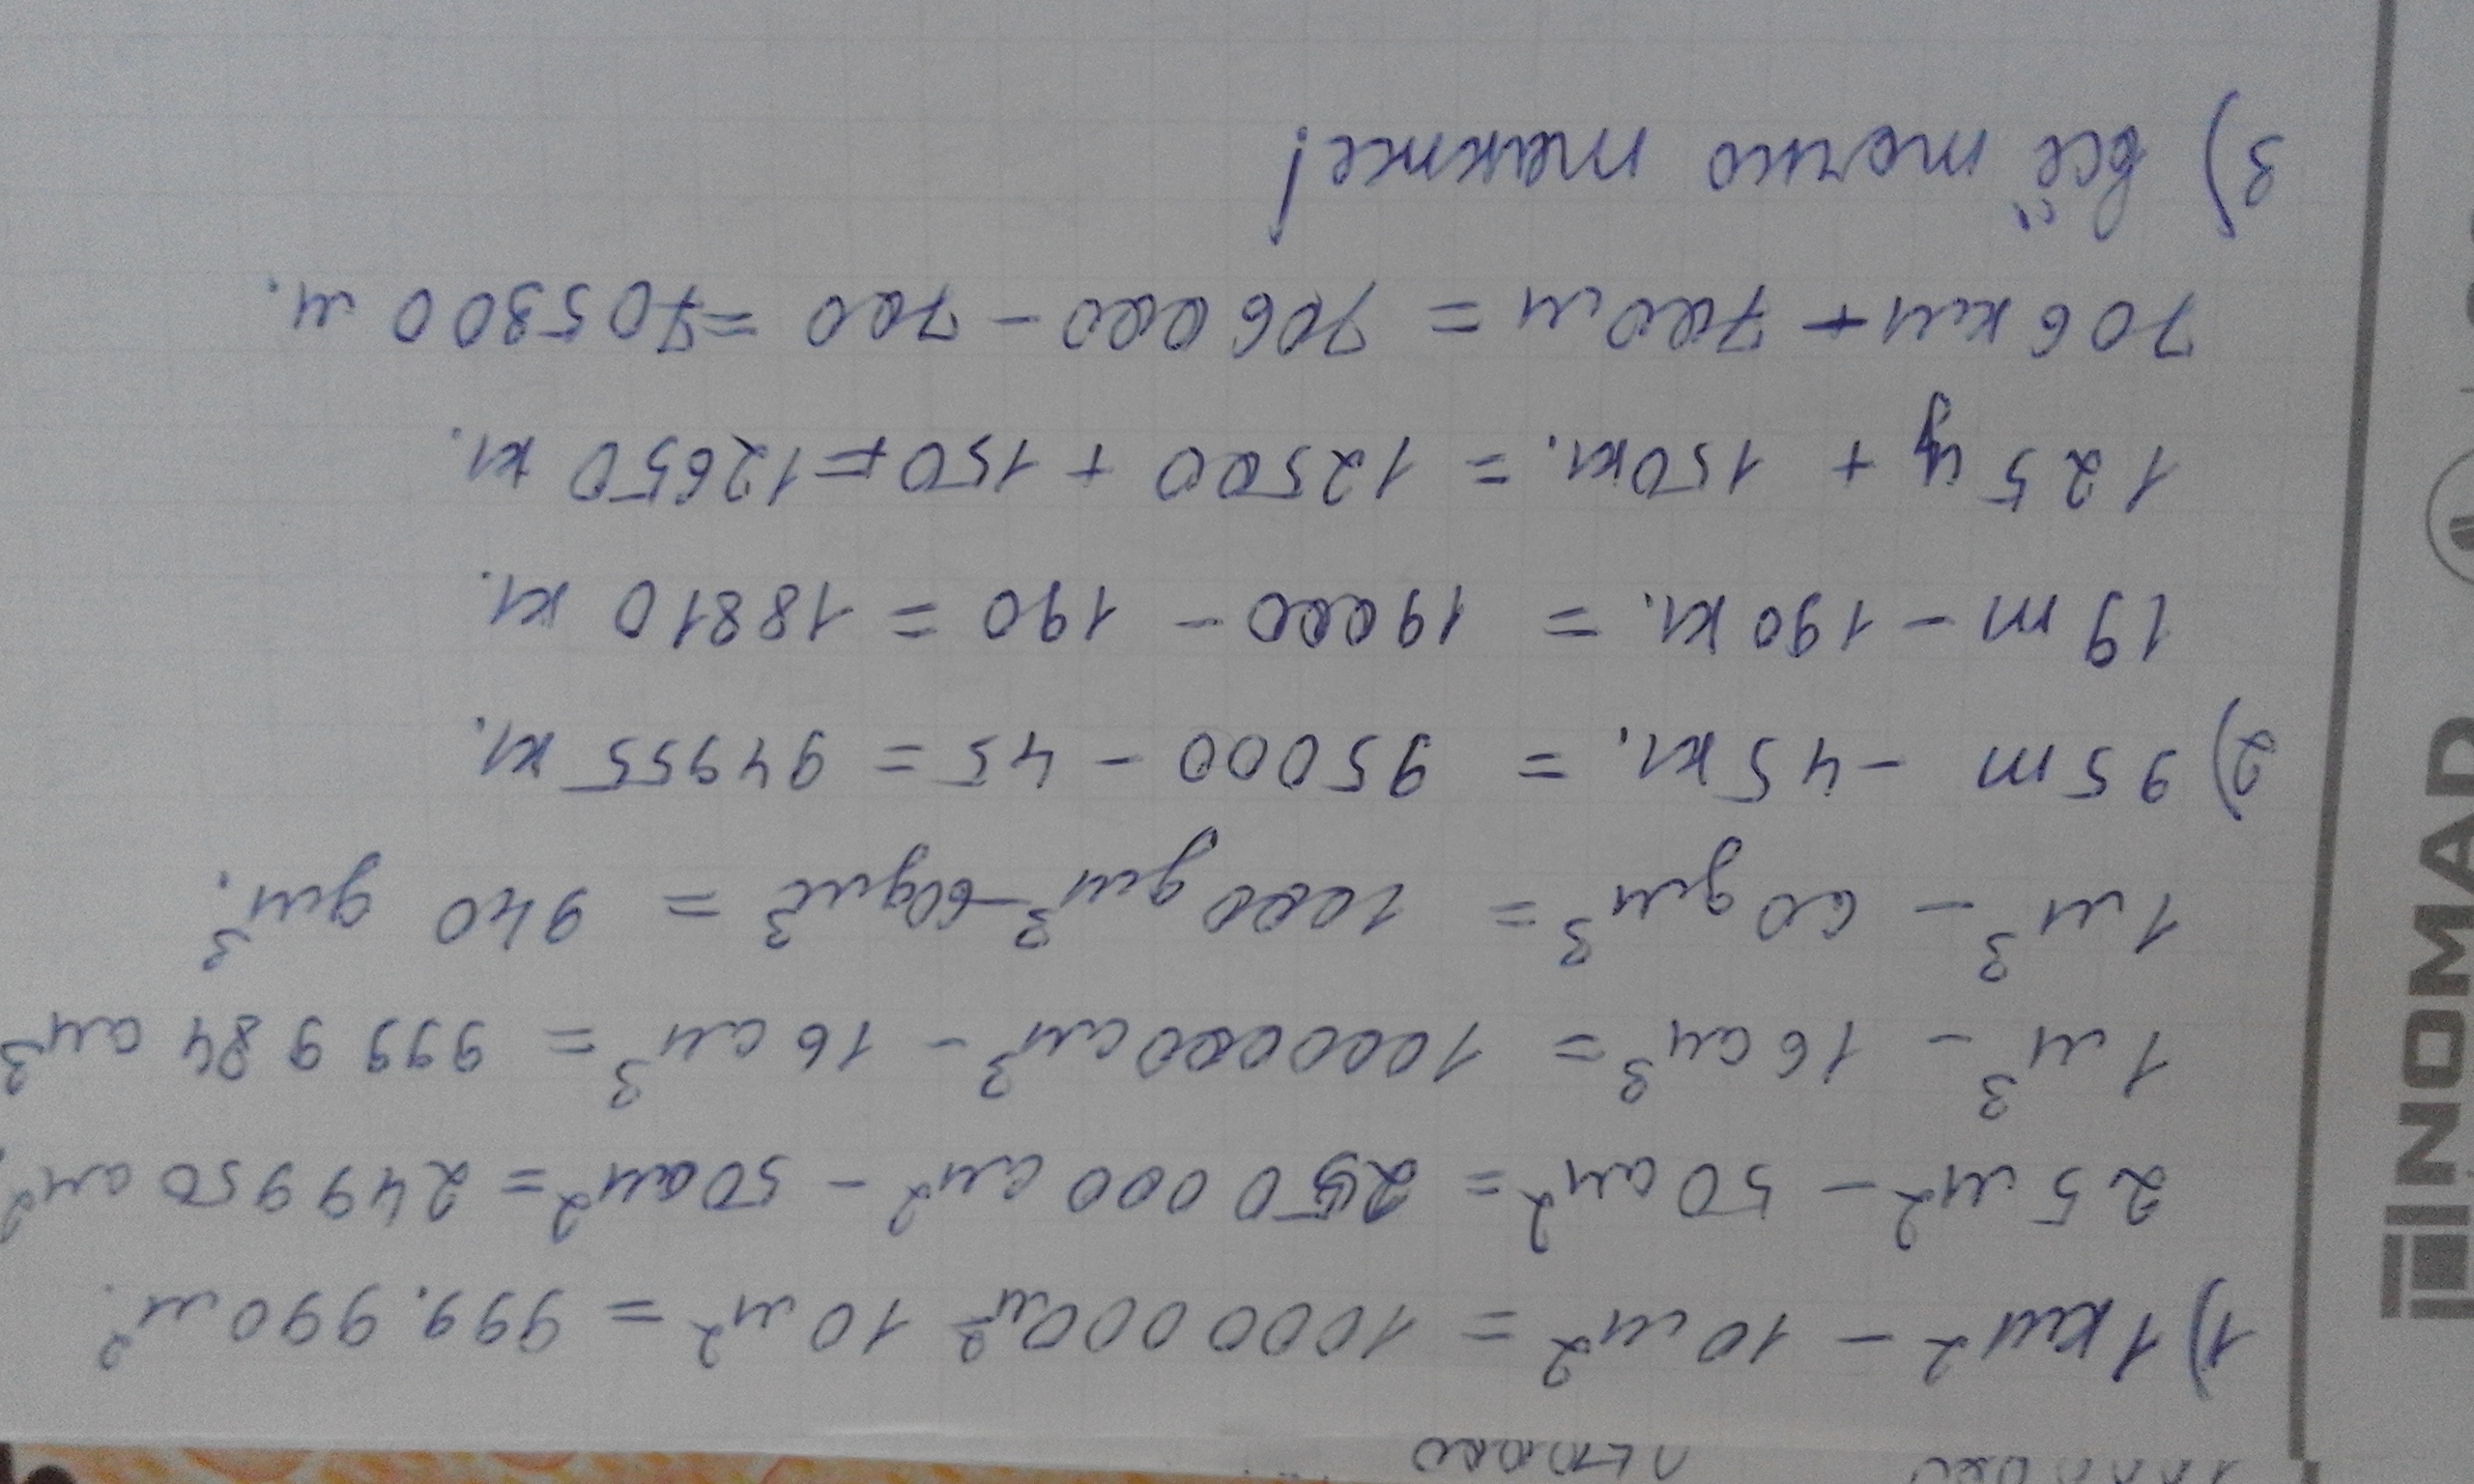 1) 1 км² - 10 м² = 1000 000 м² - 10 м² = 999.990 м².
25 м² - 50 см² = 250 000 см² - 50 см² = 249 950 см²
1 м³ - 16 см³ = 1000000 см³ - 16 см³ = 999 984 см³
1 м³ - 60 дм³ = 1000 дм³ - 60 дм³ = 940 дм³.
2) 95 т - 45 кг. = 95000 - 45 = 94955 кг.
19 т - 190 кг. = 19000 - 190 = 18810 кг.
125 ц + 150 кг. = 12500 + 150 = 12650 кг.
706 км - 700 м = 706 000 - 700 = 705300 м.
3) всё точно также!
NOMAD